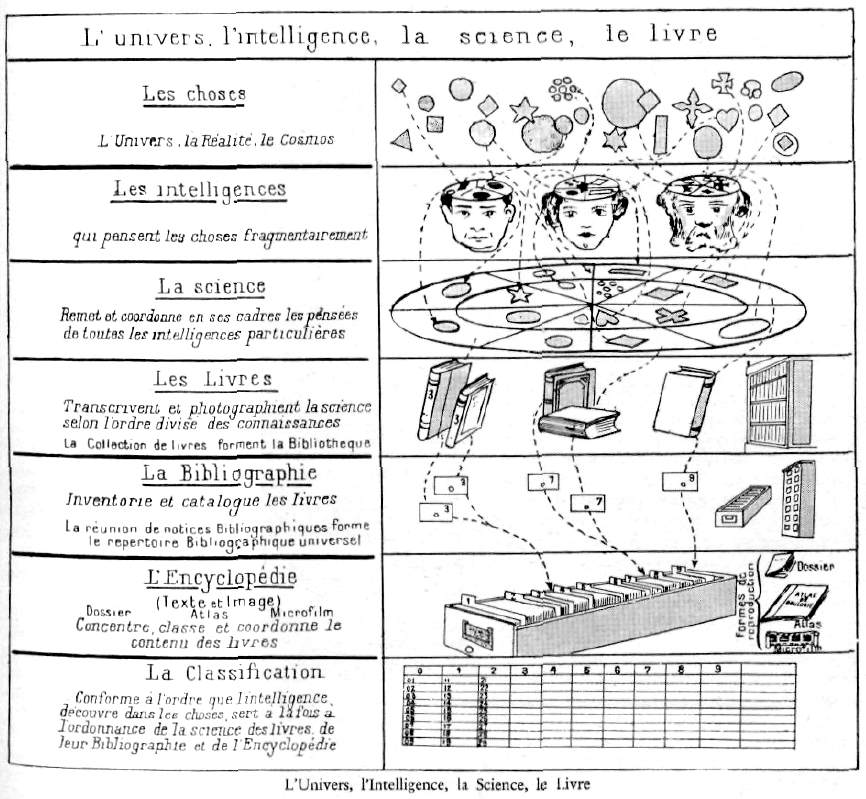 L'univers, l'intelligence, la science, le livre
Les choses
L'Univers, la Réalité, le Cosmos
Les intelligences
qui pensent les choses fragmentairement
La science
Remet et coordonne en ses cadres les pensées
de toutes les intelligences particulières
Les Livres
Transcrivent et photographient la science
selon l'ordre divisé des connaissances
La Collection de livres forment la Bibliotheque
3
3
La Bibliographie
Inventorie et catalogue les livres
La réunion de notices Bibliographiques forme
le repertoire Bibliographique universel
3
3
7
7
9
L'Encyclopédie
(Texte et Image)
Dossier Atlas Microfilm
Concentre, classe et coordonne le
contenu des livres
formes de
reproduction
Dossier
ATLAS
DE
Atlas
Microfilm
La Classification
Conforme à l'ordre que lintelligence,
découvre dans les choses, sert a la fois a
l'ordonnance de la science des livres, de
leur Bibliographie et de l'Encyclopédie
0 1 2 3 4 5 6 7 8 9
01 11 21
L'Univers, l'Intelligence, la Science, le Livre